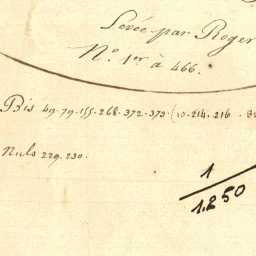 Levée par Roger
N.º 1.er à 466.
Bis 49.79.155.268.372.373. 214.216
Nuls 229.230.
1
1.250